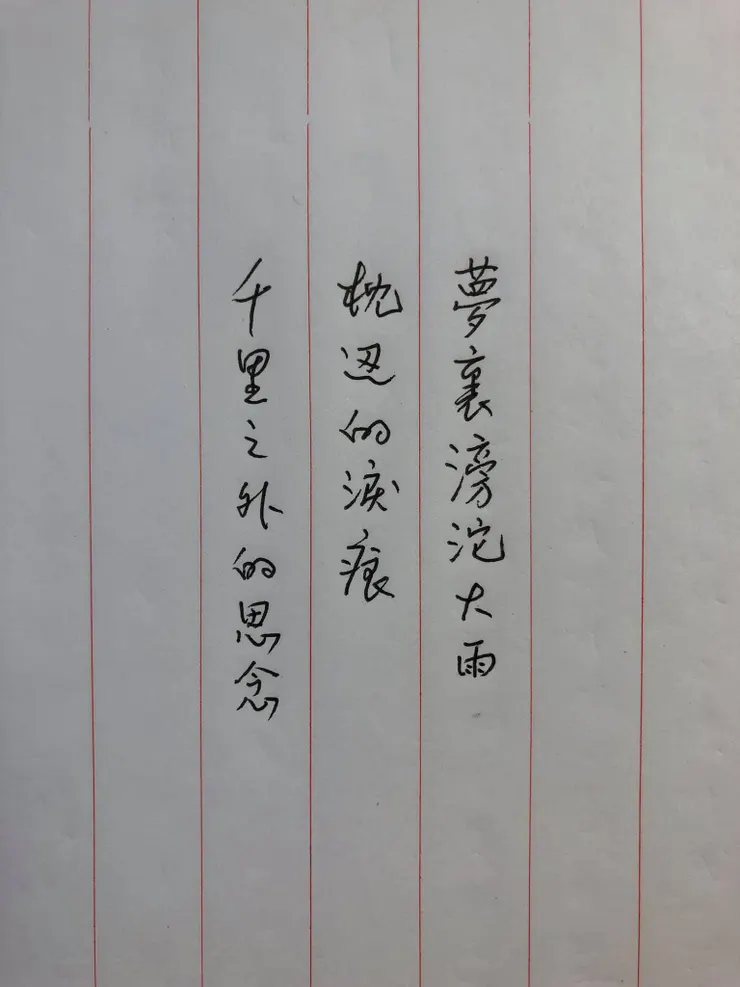 夢裏滂沱大雨
枕边的淚痕
千里之外的思念